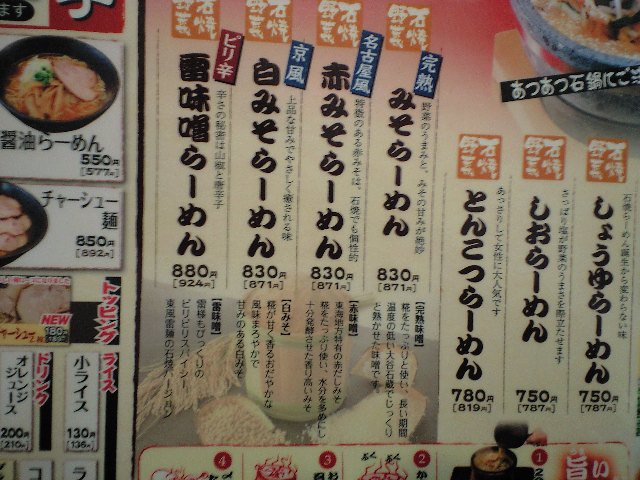 石焼
野菜
石焼
野菜
石焼
野菜
石焼
野菜
あつあつ石鍋にご
完熟
みそらーめん
野菜のうまみと、みその甘みが絶妙
830円
[871円]
名古屋風
赤みそらーめん
特徴のある赤みそは、石焼でも個性的
830円
[871円]
京風
白みそらーめん
上品な甘みでやさしく癒される味
830円
[871円]
ピリ辛
雷味噌らーめん
辛さの秘密は山椒と唐辛子
880円
[924円]
石焼
野菜
石焼
野菜
石焼
野菜
しょうゆらーめん
石焼らーめん誕生から変わらない味
750円
[787円]
しおらーめん
さっぱり塩が野菜のうまさを際立たせます
750円
[787円]
とんこつらーめん
あっさりして女性に大人気です
780円
[819円]
【完熟味噌】
糀をたっぷりと使い、長い期間
温度の低い大谷石蔵でじっくり
と熟かせた味噌です。
【赤味噌】
東海地方特有の赤だしみそ
糀をたっぷり使い、水分を多めにし
十分発酵させた香り高いみそ
【白みそ】
糀が甘く香るおだやかな
風味まろやかで
甘みのある白みそ
【雷味噌】
雷様もびっくりの
ビリビリスパイシー
東風雷神の石焼バージョン
ます
醤油らーめん
550円
[577円]
チャーシュー
麺
850円
[892円]
トッピング
NEW
180円
ライス
小ライス
130円
[136円]
ドリンク
オレンジ
ジュース
200円
[210円]
1
2
3
4
旨い